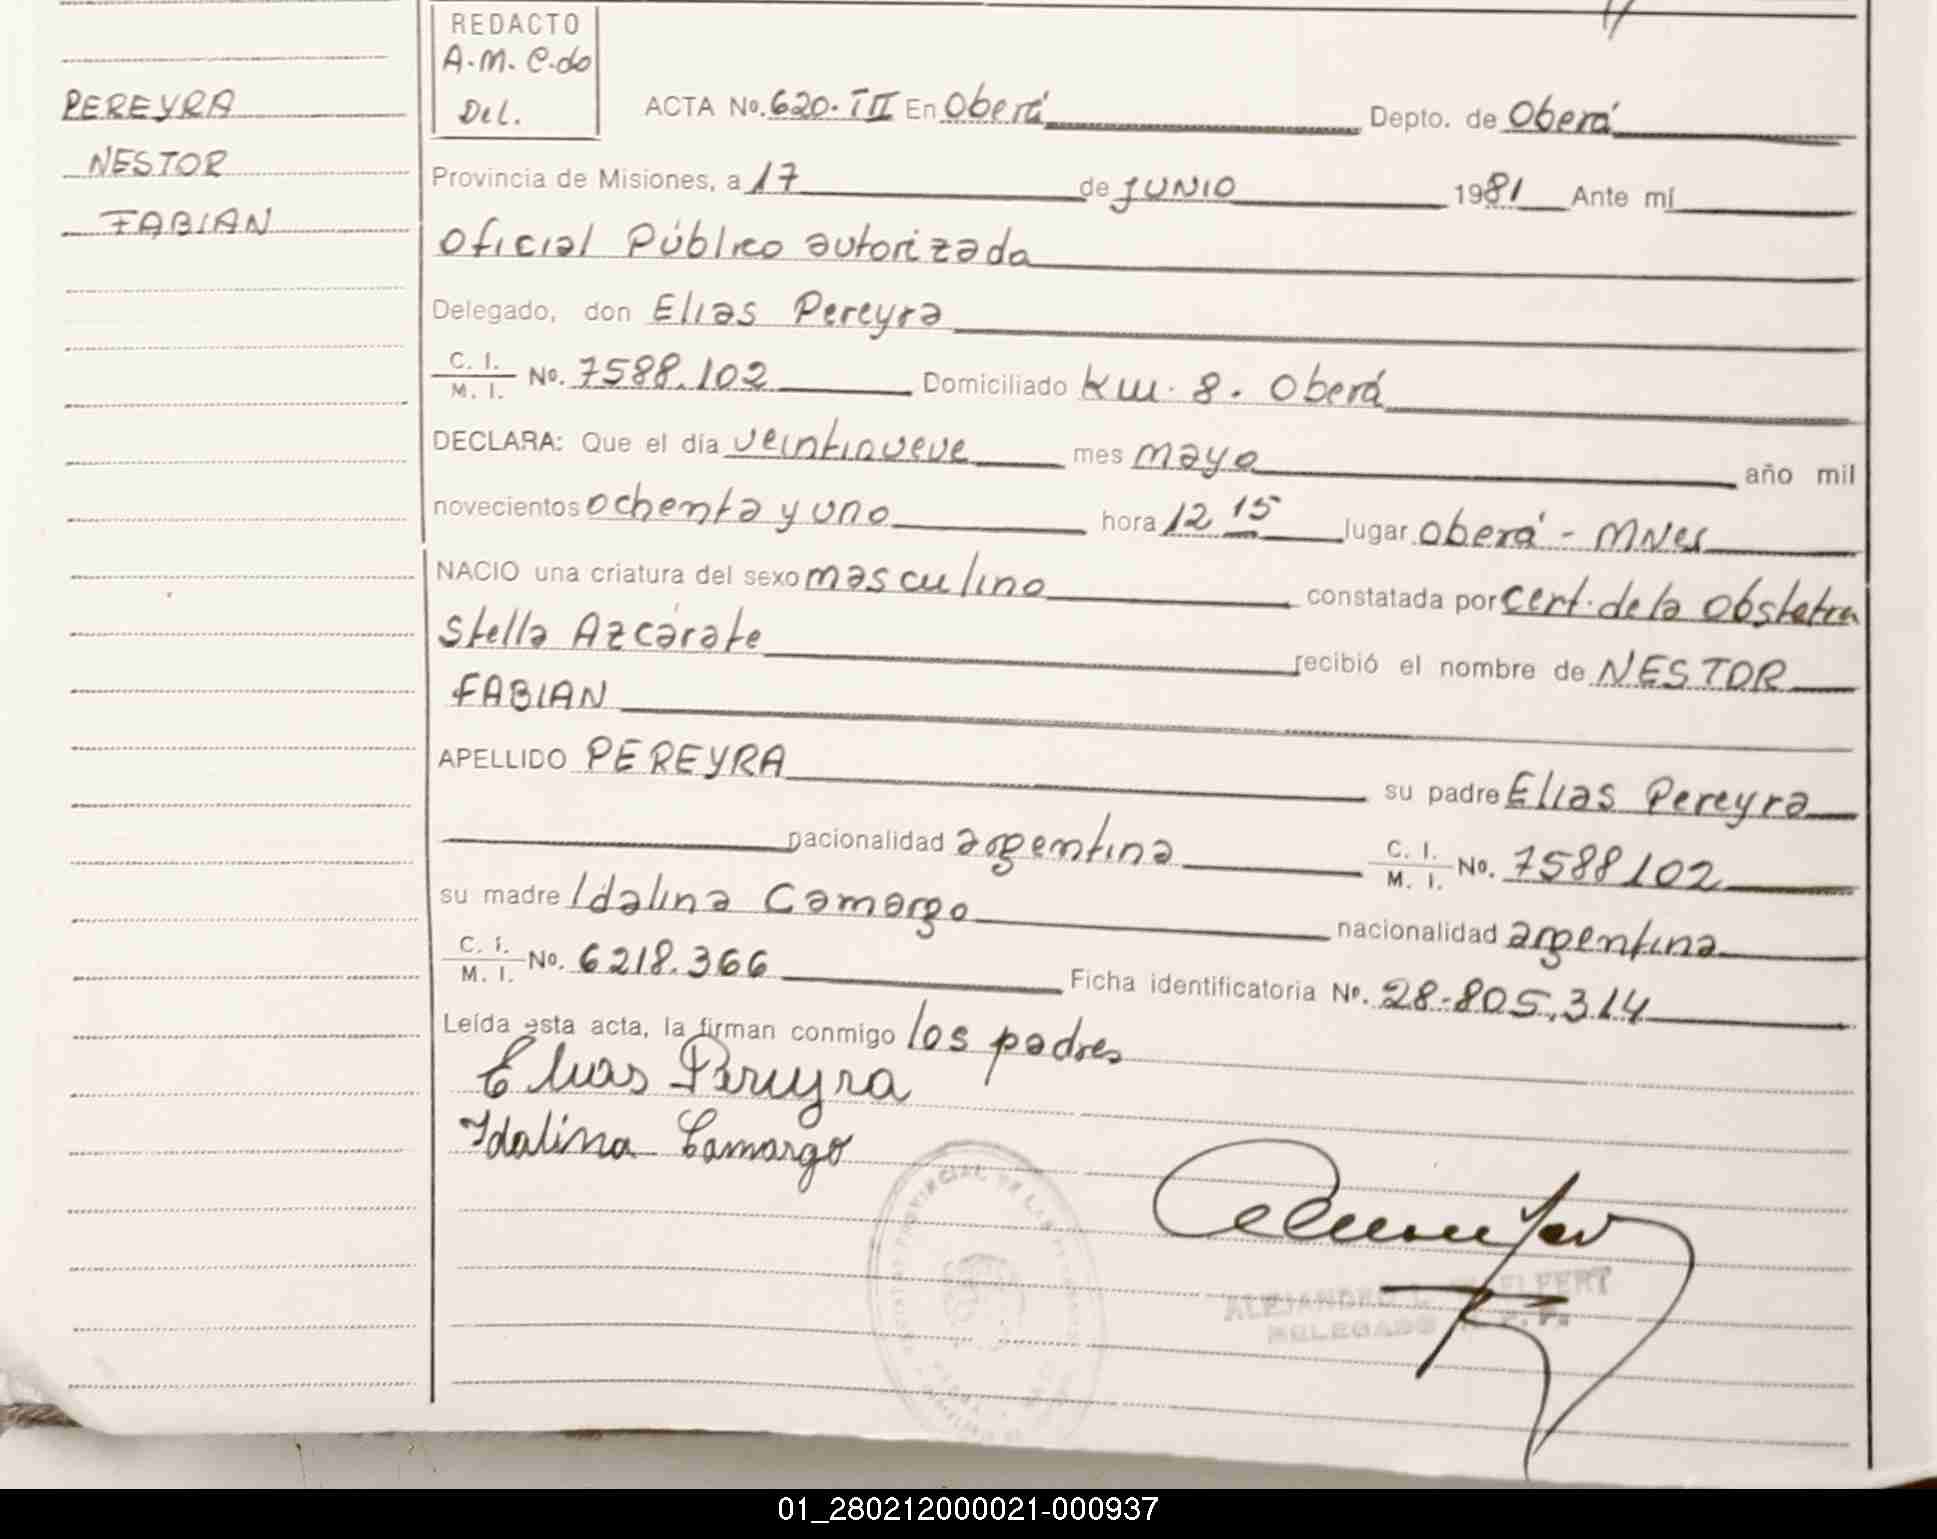 REDACTO
A.M. C.do
Del.
PEREYRA
NESTOR
FABIAN
ACTA No. 620. III En Oberá Depto. de Oberá
Provincia de Misiones, a 17 de JUNIO 1981 Ante mí
Oficial Público autorizada
Delegado, don Elias Pereyra
C. I. / M. I. No. 7588.102 Domiciliado Km. 8. Oberá
DECLARA: Que el día veintinueve mes mayo año mil
novecientos ochenta y uno hora 12 15 lugar Oberá - MNes
NACIO una criatura del sexo masculino constatada por cert. de la Obstetra
Stella Azcárate recibió el nombre de NESTOR
FABIAN
APELLIDO PEREYRA su padre Elias Pereyra
nacionalidad argentina C. I. / M. I. No. 7588102
su madre Idalina Camargo nacionalidad argentina
C. I. / M. I. No. 6218.366 Ficha identificatoria No. 28.805.314
Leída esta acta, la firman conmigo los padres
Elias Pereyra
Idalina Camargo
ALEJANDRO
DELEGADO
01_280212000021-000937